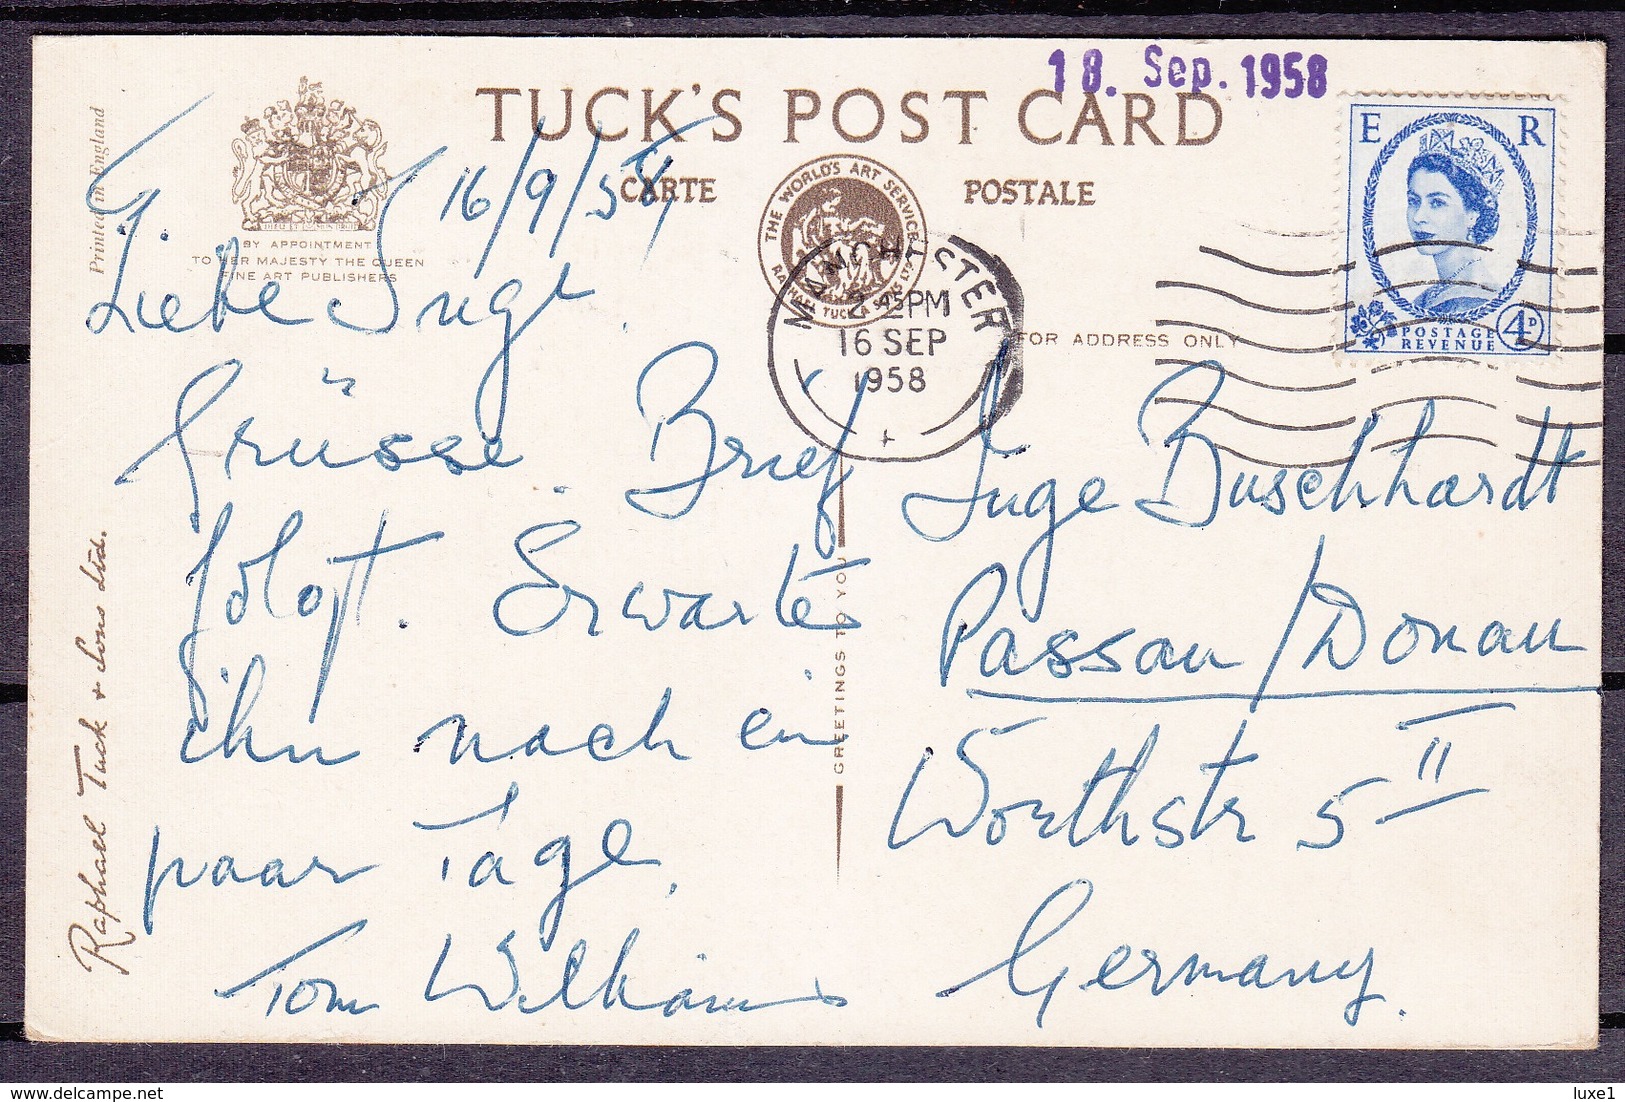 18. Sep. 1958
TUCK'S POST CARD
CARTE POSTALE
Printed in England
BY APPOINTMENT
TO HER MAJESTY THE QUEEN
FINE ART PUBLISHERS
THE WORLD'S ART SERVICE
RAPHAEL TUCK & SONS LTD
MANCHESTER
2 45 PM
16 SEP
1958
E R
POSTAGE
REVENUE
4D
FOR ADDRESS ONLY
GREETINGS TO YOU
Raphael Tuck & Sons Ltd.
16/9/58
Liebe Inge.
Grüsse. Brief
folgt. Erwarte
ihn nach ein
paar Tage.
Tom Williams
Inge Buschhardt
Passau/Donau
Wörthstr 5 II
Germany.
luxe1